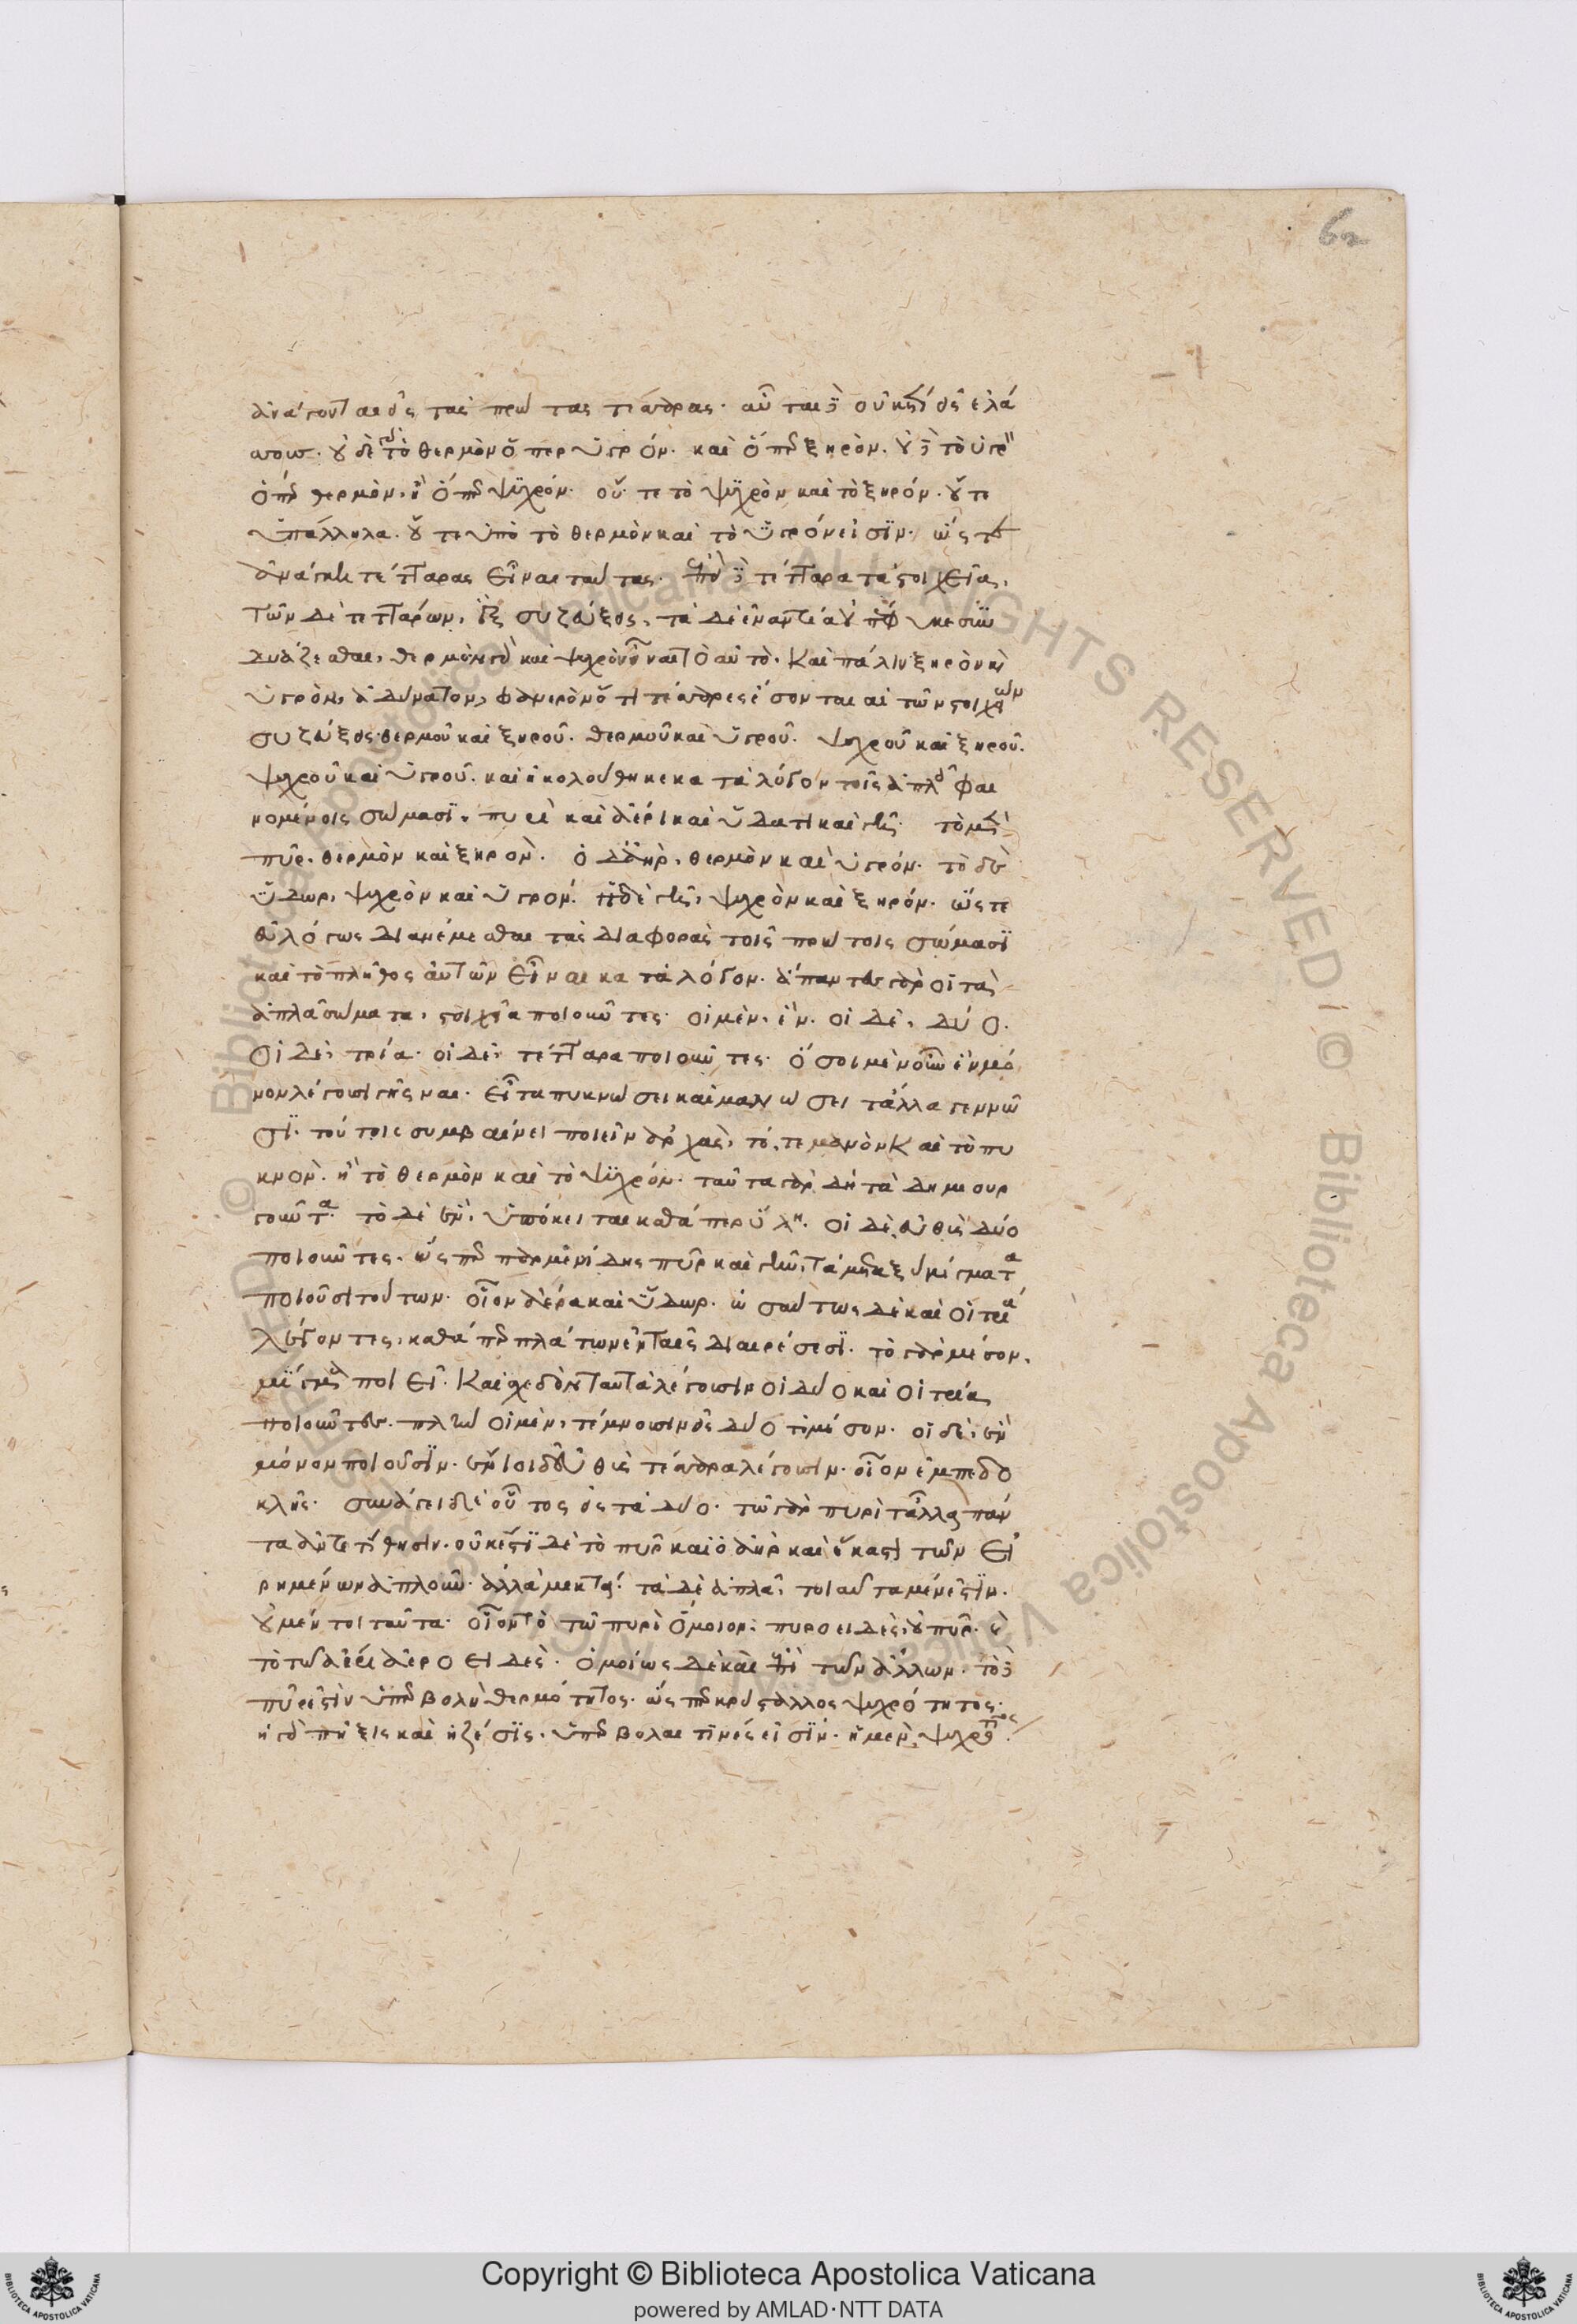 62
ἀνάγονται εἰς τὰς πρώτας τέτταρας. αὗται δὲ οὐκέτι εἰς ἐλά
ττους. οὐδὲ γὰρ τὸ θερμὸν ὅπερ ὑγρόν. καὶ ὅπερ ξηρὸν. οὐδὲ τὸ ὑγρὸν
ὅπερ θερμὸν. ἢ ὅπερ ψυχρόν. οὔτε τὸ ψυχρὸν καὶ τὸ ξηρόν. οὔτε
ὑπάλληλα. οὔτε ὑπὸ τὸ θερμὸν καὶ τὸ ὑγρόν εἰσϊν. ὥστε
ἀνάγκη τέτταρας εἶναι ταύτας. ἐπεὶ δὲ τέτταρα τὰ στοιχεῖα,
τῶν δὲ τεττάρων, ἓξ συζεύξεις, τὰ δὲ ἐναντία οὐ πέφυκε συν
δυάζεσθαι, θερμὸν γὰρ καὶ ψυχρὸν εἶναι τὸ αὐτὸ. καὶ πάλιν ξηρὸν καὶ
ὑγρὸν, ἀδύνατον, φανερὸν ὅτι τέτταρες ἔσονται αἱ τῶν στοιχείων
συζεύξεις. θερμοῦ καὶ ξηροῦ. θερμοῦ καὶ ὑγροῦ. ψυχροῦ καὶ ξηροῦ.
ψυχροῦ καὶ ὑγροῦ. καὶ ἠκολούθηκε κατὰ λόγον τοῖς ἁπλοῖς φαι
νομένοις σώμασϊ, πυρὶ καὶ ἀέρι καὶ ὕδατι καὶ γῆ. τὸ μὲν
πῦρ, θερμὸν καὶ ξηρὸν. ὁ δὲ ἀὴρ, θερμὸν καὶ ὑγρόν. τὸ δὲ
ὕδωρ, ψυχρὸν καὶ ὑγρόν. ἡ δὲ γῆ, ψυχρὸν καὶ ξηρόν. ὥστε
εὐλόγως διανέμεσθαι τὰς διαφορὰς τοῖς πρώτοις σώμασϊ
καὶ τὸ πλῆθος αὐτῶν εἶναι κατὰ λόγον. ἅπαντες γὰρ οἱ τὰ
ἁπλᾶ σώματα, στοιχεῖα ποιοῦντες. οἱ μὲν, ἕν. οἱ δὲ, δύο.
οἱ δὲ, τρία. οἱ δὲ, τέτταρα ποιοῦντες. ὅσοι μὲν οὖν ἓν μό
νον λέγουσιν εἶναι. εἶτα πυκνώσει καὶ μανώσει τἄλλα γεννῶ
σϊ. τούτοις συμβαίνει ποιεῖν ἀρχὰς, τό, τε μανὸν καὶ τὸ πυ
κνὸν. ἢ τὸ θερμὸν καὶ τὸ ψυχρόν. ταῦτα γὰρ δὴ τὰ δημιουρ
γοῦντα. τὸ δὲ ἓν, ὑπόκειται καθάπερ ὕλη. οἱ δὲ εὐθὺς δύο
ποιοῦντες. ὥσπερ παρμενίδης πῦρ καὶ γῆν, τὰ μεταξὺ μίγματα
ποιοῦσι τούτων. οἷον ἀέρα καὶ ὕδωρ. ὡσαύτως δὲ καὶ οἱ τρία
λέγοντες, καθάπερ πλάτων ἐν ταῖς διαιρέσεσϊ. τὸ γὰρ μέσον,
μῖγμα ποιεῖ. καὶ σχεδὸν ταὐτὰ λέγουσιν οἱ δύο καὶ οἱ τρία
ποιοῦντες. πλὴν οἱ μὲν, τέμνουσιν εἰς δύο τὸ μέσον. οἱ δὲ, ἓν
μόνον ποιοῦσϊν. ἔνιοι δ' εὐθὺς τέτταρα λέγουσιν. οἷον ἐμπεδο
κλῆς. συνάγει δὲ οὗτος εἰς τὰ δύο. τῷ γὰρ πυρὶ τἆλλα πάν
τα ἀντιτίθησιν. οὐκ ἔστϊ δὲ τὸ πῦρ καὶ ὁ ἀὴρ καὶ ἕκαστον τῶν εἰ
ρημένων ἁπλοῦν. ἀλλὰ μεικτά. τὰ δὲ ἁπλᾶ, τοιαῦτα μέν ἐστϊν.
οὐ μέν τοι ταῦτα. οἷον τὸ τῷ πυρὶ ὅμοιον, πυροειδὲς, οὐ πῦρ. καὶ
τὸ τῷ ἀέρι ἀεροειδὲς. ὁμοίως δὲ καὶ ἐπὶ τῶν ἄλλων. τὸ δὲ
πῦρ ἐστὶν ὑπερβολὴ θερμότητος. ὥσπερ κρύσταλλος ψυχρότητος.
ἡ γὰρ πῆξις καὶ ἡ ζέσϊς, ὑπερβολαί τινές εἰσϊν. ἡ μὲν, ψυχρότητος